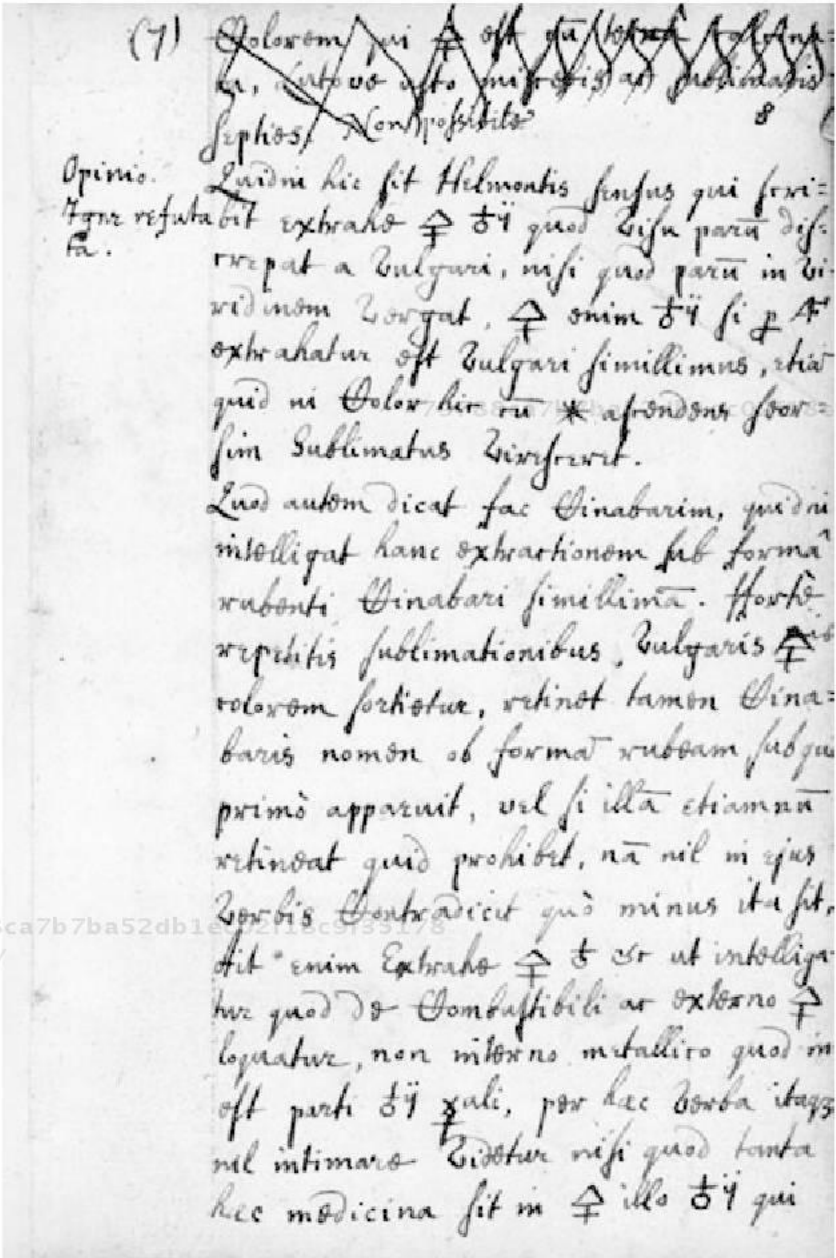 (7) Colorem qui 🜍 est cū terrâ calcina=
ta, Lutove usto miscebis ac sublimatis
septies. Non possibile 8
Opinio. Quidni hic sit Helmontis sensus qui scri=
Igne refuta bit extrahe 🜍 ♁ij quod visu parū dis=
ta. crepat a Vulgari, nisi quod parū in vi=
ridinem Vergat, 🜍 enim ♁ij si p
extrahatur est Vulgari simillimus, etiā
quid ni Color hic cū ✶ ascendens seor=
sim Sublimatus Viresceret.
Quod autem dicat fac Cinabarim, quidni
intelligat hanc extractionem sub formâ
rubenti Cinabari simillimā. fforte
repetitis sublimationibus, Vulgaris 🜍is
colorem sortietur, retinet tamen Cina=
baris nomen ob formā rubeam sub qua
primò apparuit, vel si illā etiamnū
retineat quid prohibet, nā nil in ejus
Verbis Contradicit quò minus ita sit.
Ait enim Extrahe 🜍 ♁ &c ut intelliga
tur quod de Combustibili ac externo 🜍
loquatur, non interno metallico quod in
est parti ♁ij ☿ali, per hæc Verba itaqꝫ
nil intimare Videtur nisi quod tanta
hæc medicina sit in 🜍 illo ♁ij qui